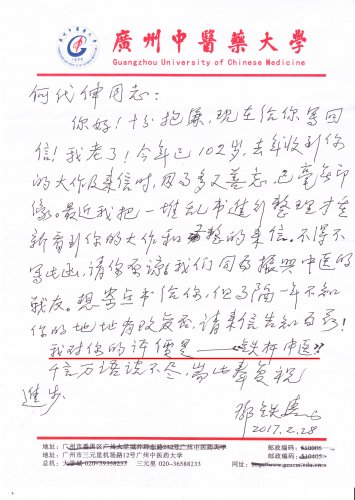 廣州中醫藥大學
Guangzhou University of Chinese Medicine
何代伸同志:
你好!十分抱歉,现在给你写回
信!我老了!今年已102岁,去年收到你
的大作及来信时,因了多又善忘,已毫无印
象。最近我把一堆乱书进行整理才重
新看到你的大作和 的来信。不得不
写此函,请你原谅我们同为振兴中医的
战友。想寄点书给你,但了隔一年不知
你的地址有改变否,请来信告知为盼!
我对你的评价是——"铁杆中医"
千言万语说不尽,耑此奉复祝
进步
邓铁涛
2017.2.28
地址:广州市番禺区广州大学城外环东路232号广州中医药大学
邮政编码:510006
地址:广州市三元里机场路12号广州中医药大学
邮政编码:510405
总机:大学城 020-39358233 三元里 020-36588233
网址:http://www.gzucm.edu.cn